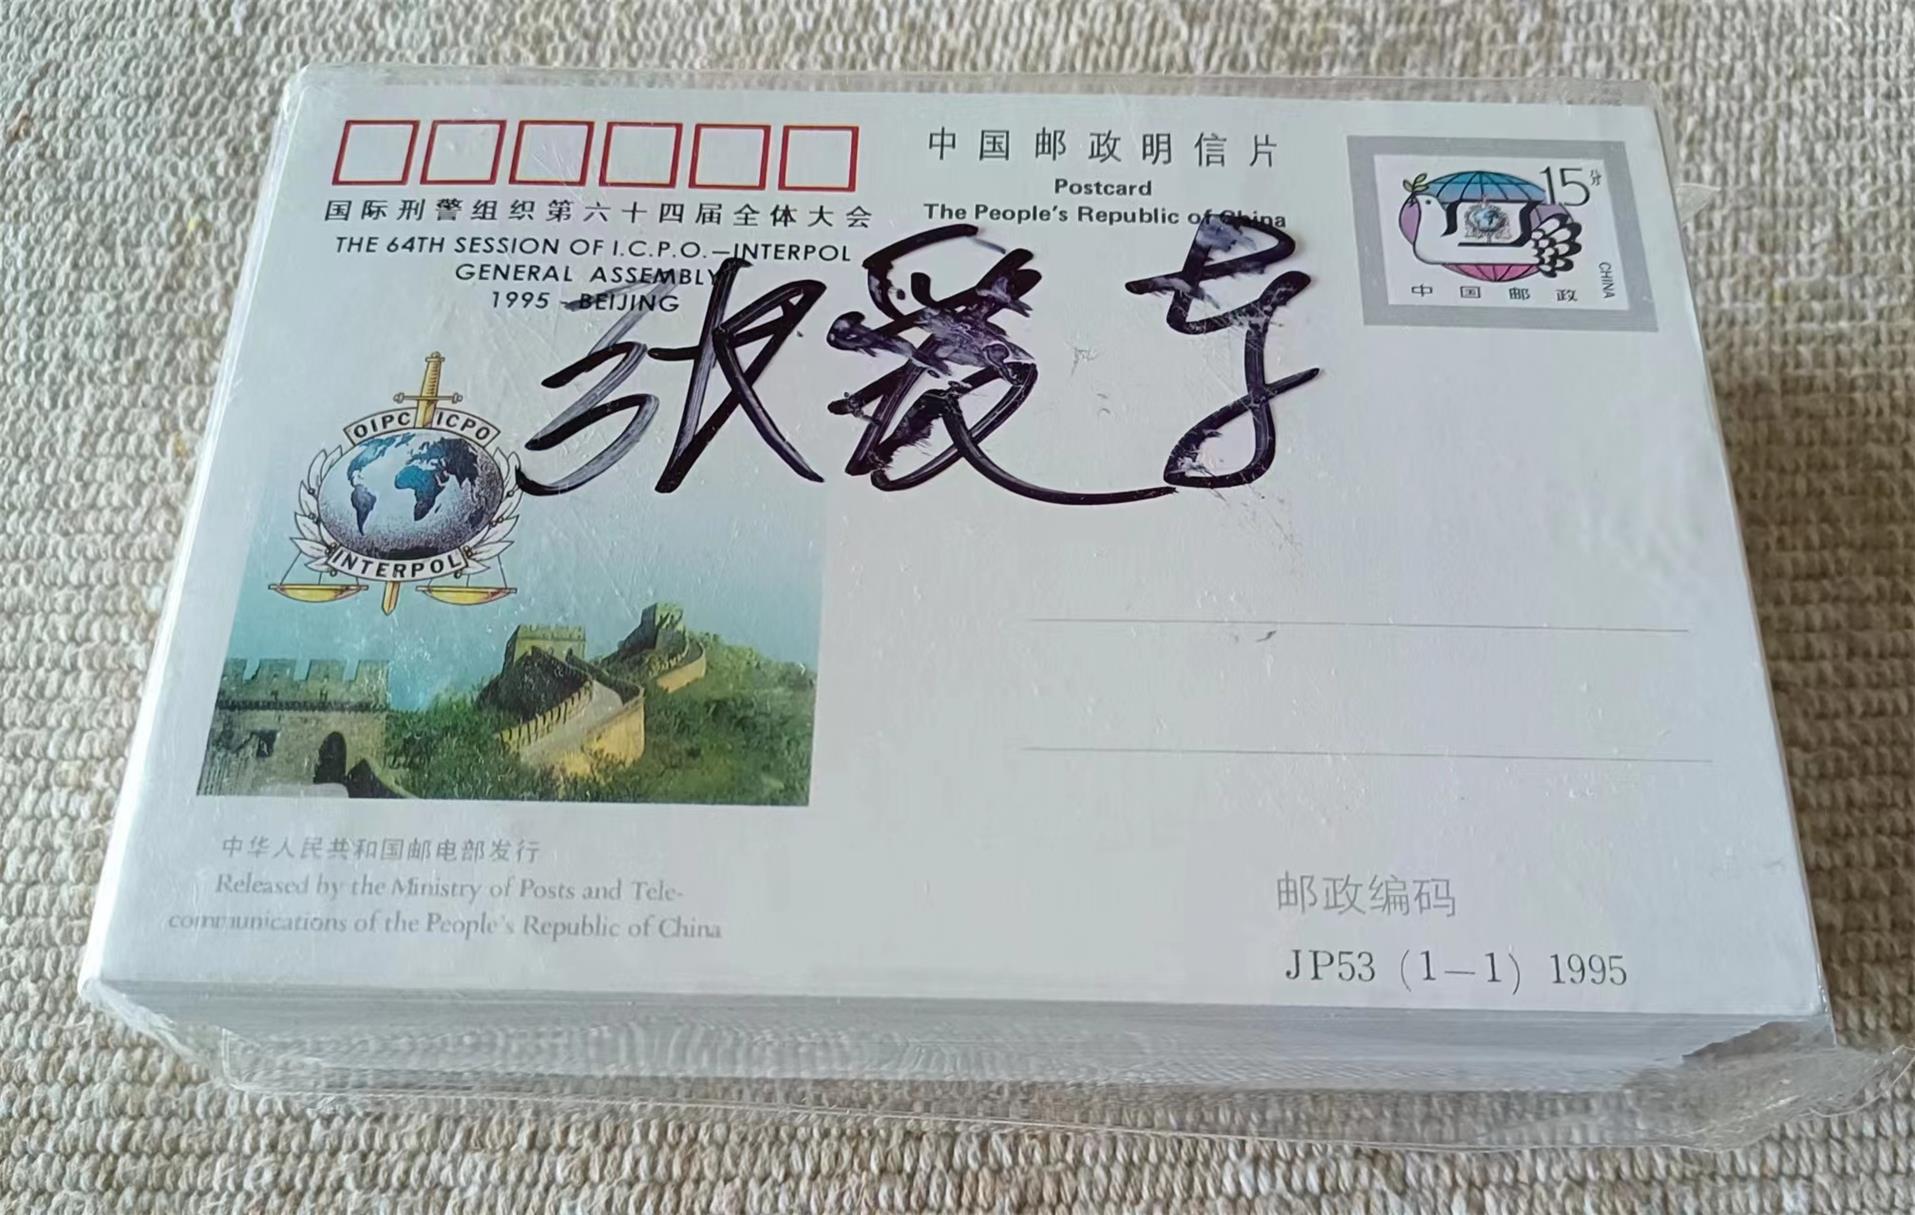 中国邮政明信片
Postcard
The People's Republic of China
15分
CHINA
中国邮政
国际刑警组织第六十四届全体大会
THE 64TH SESSION OF I.C.P.O.—INTERPOL
GENERAL ASSEMBLY
1995 - BEIJING
OIPC ICPO
INTERPOL
中华人民共和国邮电部发行
Released by the Ministry of Posts and Tele-
communications of the People's Republic of China
邮政编码
JP53 (1—1) 1995